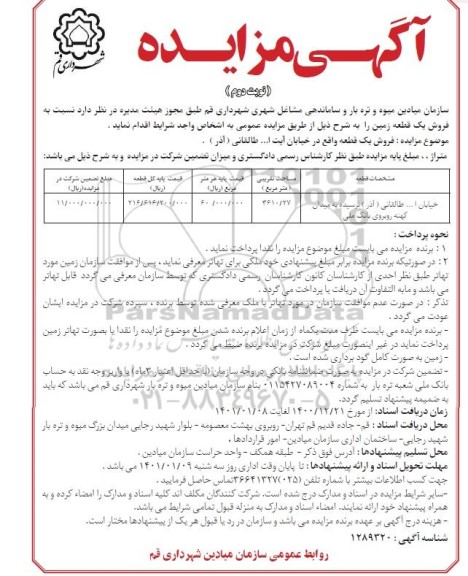 آگهی مزایده
شهرداری قم
(نوبت دوم)
سازمان میادین میوه و تره بار و ساماندهی مشاغل شهری شهرداری قم طبق مجوز هیئت مدیره در نظر دارد نسبت به
فروش یک قطعه زمین را به شرح ذیل از طریق مزایده عمومی به اشخاص واجد شرایط اقدام نماید .
موضوع مزایده : فروش یک قطعه واقع در خیابان آیت ا... طالقانی ( آذر ) .
متراژ . . مبلغ پایه مزایده طبق نظر کارشناس رسمی دادگستری و میزان تضمین شرکت در مزایده و به شرح ذیل می باشد:
مشخصات قطعه | مساحت تقریبی ( متر مربع ) | قیمت پایه هر متر مربع (ریال) | قیمت پایه کل قطعه (ریال) | مبلغ تضمین شرکت در مزایده(ریال)
خیابان ا ... طالقانی ( آذر ) نرسیده به میدان کهنه روبروی بانک ملی | ۳۶۱۰/۲۷ | ۶۰ /۰۰۰/۰۰۰ | ۲۱۶/۶۱۶/۲۰۰/۰۰۰ | ۱۱/۰۰۰/۰۰۰/۰۰۰
نحوه پرداخت :
۱ : برنده مزایده می بایست مبلغ موضوع مزایده را نقدا پرداخت نماید .
۲ : در صورتیکه برنده مزایده برابر مبلغ پیشنهادی خود ملکی برای تهاتر معرفی نماید ، پس از موافقت سازمان زمین مورد
تهاتر طبق نظر احدی از کارشناسان کانون کارشناسان رسمی دادگستری که توسط سازمان معرفی می گردد قابل تهاتر
می باشد و مابه التفاوت آن دریافت یا پرداخت می گردد .
تذکر : در صورت عدم موافقت سازمان در مورد تهاتر با ملک معرفی شده توسط برنده ، سپرده شرکت در مزایده ایشان
عودت می گردد .
- برنده مزایده می بایست ظرف مدت یکماه از زمان اعلام برنده شدن مبلغ موضوع مزایده را نقدا یا بصورت تهاتر زمین
پرداخت نماید در غیر اینصورت مبلغ شرکت در مزایده برنده ضبط می گردد .
- زمین به صورت کامل گود برداری شده است .
- تضمین شرکت در مزایده به صورت ضمانتنامه بانکی در وجه سازمان (با حداقل اعتبار ۳ ماه) یا واریز وجه نقد به حساب
بانک ملی شعبه تره بار به شماره ۰۱۱۵۴۲۷۰۸۹۰۰۴ بنام سازمان میادین میوه و تره بار شهرداری قم می باشد که باید
به ضمیمه پیشنهاد تسلیم گردد.
زمان دریافت اسناد: از مورخ ۱۴۰۰/۱۲/۲۱ لغایت ۱۴۰۱/۰۱/۰۸
محل دریافت اسناد : قم- جاده قدیم قم تهران- روبروی بهشت معصومه - بلوار شهید رجایی میدان بزرگ میوه و تره بار
شهید رجایی- ساختمان اداری سازمان میادین- امور قراردادها .
محل تسلیم پیشنهادها : آدرس فوق ذکر - طبقه همکف - واحد حراست سازمان میادین .
مهلت تحویل اسناد و ارائه پیشنهادها : تا پایان وقت اداری روز سه شنبه ۱۴۰۱/۰۱/۰۹ می باشد .
جهت کسب اطلاعات بیشتر با شماره تلفن (۰۲۵)۳۶۶۴۱۳۲۷ تماس حاصل فرمایید .
-سایر شرایط مزایده در اسناد و مدارک درج شده است، شرکت کنندگان مکلف اند کلیه اسناد و مدارک را امضاء کرده و به
همراه پیشنهاد خود ارائه نمایند. امضاء اسناد و مدارک به منزله قبول تمامی شرایط می باشد.
- هزینه درج آگهی بر عهده برنده مزایده می باشد و سازمان در رد یا قبول هر یک از پیشنهادها مختار است.
شناسه آگهی : ۱۲۸۹۳۲۰
روابط عمومی سازمان میادین شهرداری قم
ParsNamadData
۰۲۱-۸۸۳۴۹۶۷۰-۵